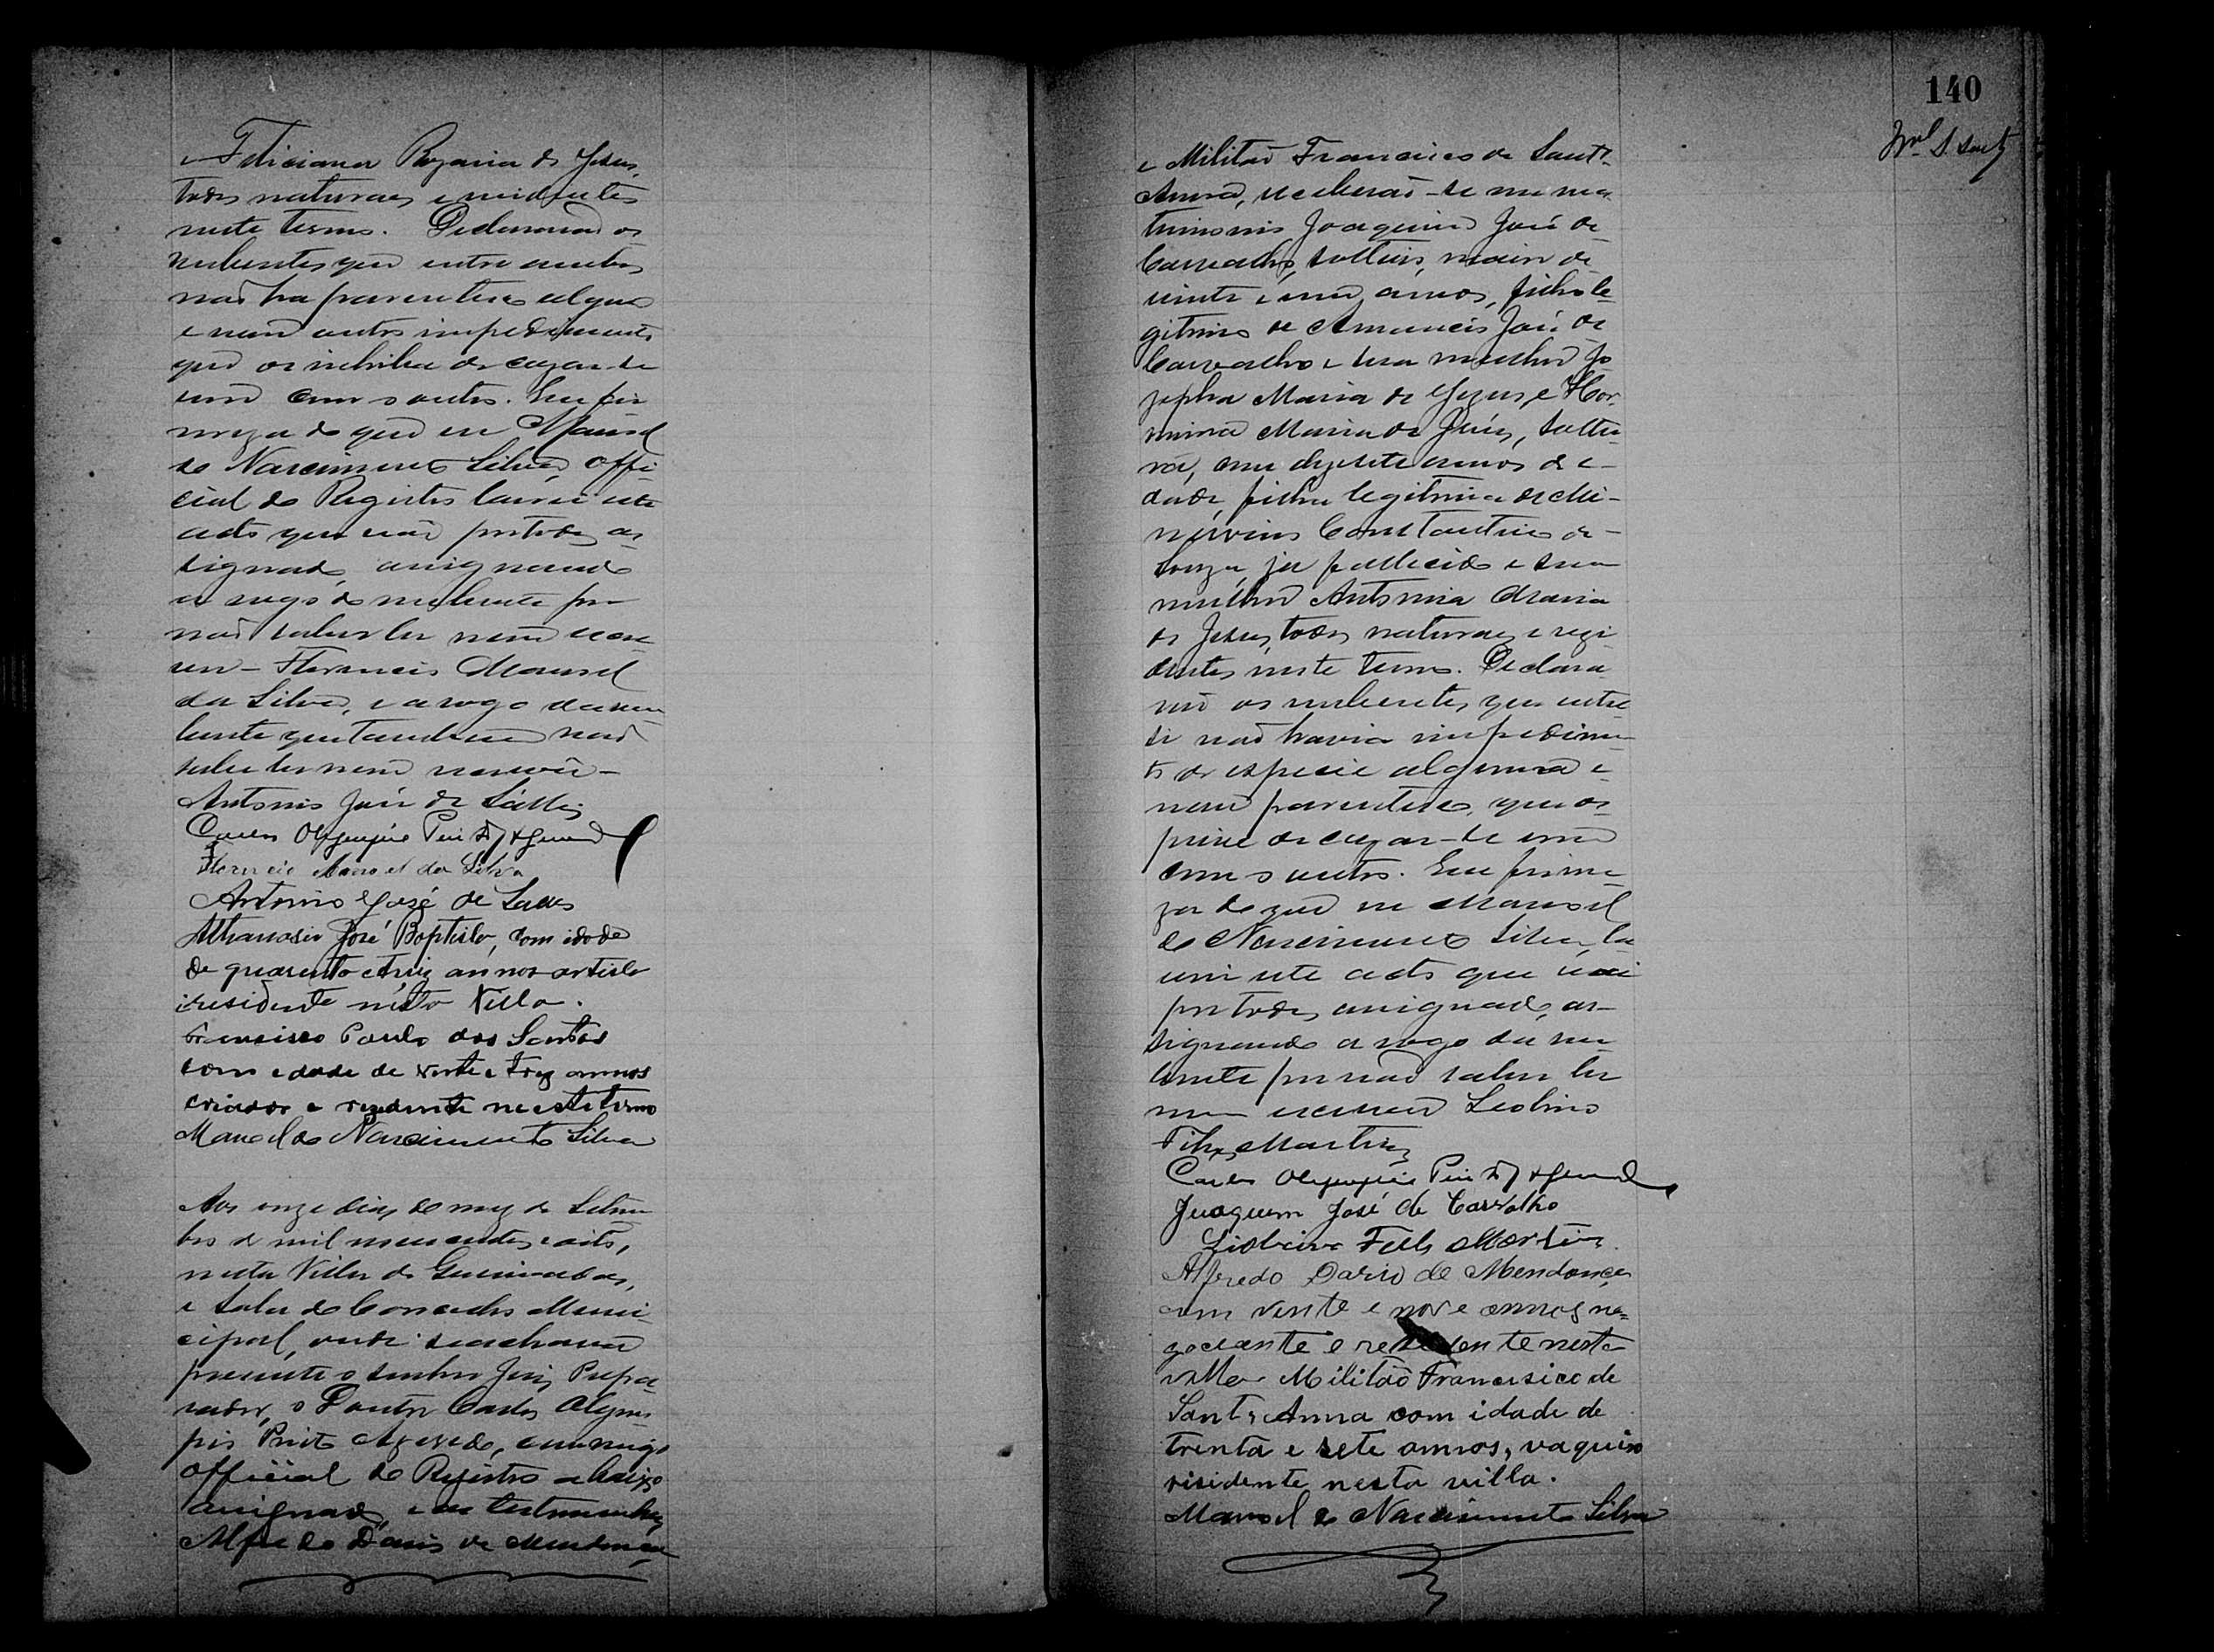 e Feliciana Rozaria de Jesus,
todos naturaes e residentes
neste termo. Declararão os
nubentes que entre ambos
não ha parentesco algum
e nem outro impedimento
que os inhiba de cazar-se
um com o outro. Em fir
meza do que eu Manoel
do Nascimento Silva, offi
cial do Registro lavrei este
acto que vai por todos as
signado, assignando
a rogo do nubente por
não saber ler nem escre
ver - Florencio Manoel
da Silva, e a rogo da nu
bente que tambem não
sabe ler nem escrever -
Antonio José de Salles
Carlos Olympio Pinto d'Azevedo
Florencio Manoel da Silva
Antonio José de Salles
Athanasio José Baptista, com idade
de quarenta e trez annos artista
e residente nesta Villa.
Francisco Paulo dos Santos
com edade de vente e trez annos
criador e rezidente neeste termo
Manoel do Nascimento Silva
Aos onze dias do mez de Setem
bro de mil novecentos e oito,
nesta Villa de
e Sala do Conselho Muni
cipal, onde se achava
presente o senhor Juiz Prepa
rador, o Doutor Carlos Olym
pio Pinto Azevedo, commigo
Official do Registro abaixo
assignado, e as testemunhas
Alfredo Dario de Mendonça
140
e Militão Francisco de Sant'
Anna, receberão-se em ma
trimonio Joaquim José de
Carvalho, solteiro, maior de
vinte e um annos, filho le
gitimo de Amancio José de
Carvalho e sua mulher Jo
zepha Maria de Jezus, e Her
mina Maria de Jesus, soltei
ra, com dezesete annos de i-
dade, filha legitima de Mi-
nervino Constantino de
Souza, ja fallecido e sua
mulher Antonia Maria
de Jesus, todos naturaes e rezi
dentes neste termo. Declara
rão os nubentes, que entre
si não havia impedimen
to de especie alguma e
nem parentesco, que os
prive de cazar-se um
com o outro. Em firme
za do que eu Manoel
do Nascimento Silva, la
vrei este acto que vai
por todos assignado, as-
signando a rogo da nu
bente por não saber ler
nem escrever Leolino
Felix Martins
Carlos Olympio Pinto d'Azevedo
Juaquim José de Carvalho
Liolino Felis Martins
Alfredo Dario de Mendonça
com vente e nove annos ne=
gociante e residente nesta
villa Militão Francisico de
Sant'Anna com idade de
trenta e sete annos, vaqueiro
residente nesta villa.
Manoel do Nascimento Silva